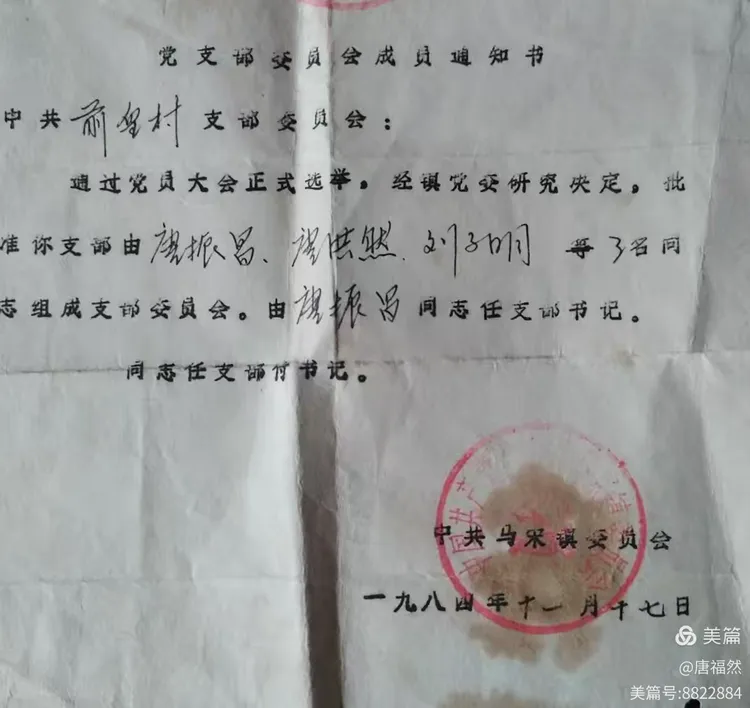 党支部委员会成员通知书
中共前里村支部委员会：
通过党员大会正式选举。经镇党委研究决定。批
准你支部由唐振昌、唐洪然、刘子明 等3名同
志组成支部委员会。由唐振昌同志任支部书记。
同志任支部付书记。
中国共产
中共马宋镇委员会
一九八四年十一月十七日
美篇
@唐福然
美篇号:8822884